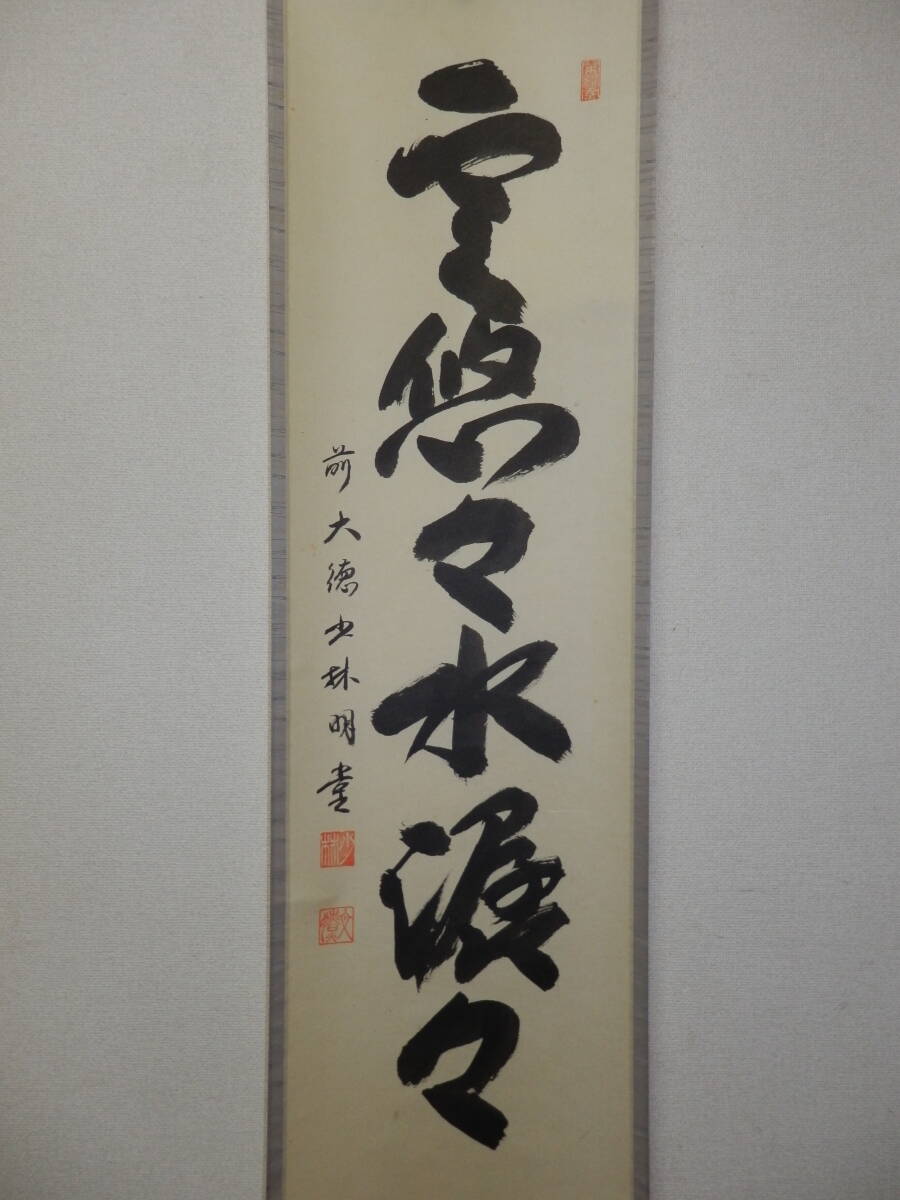 雲悠々水潺々
前大徳少林明堂
少林